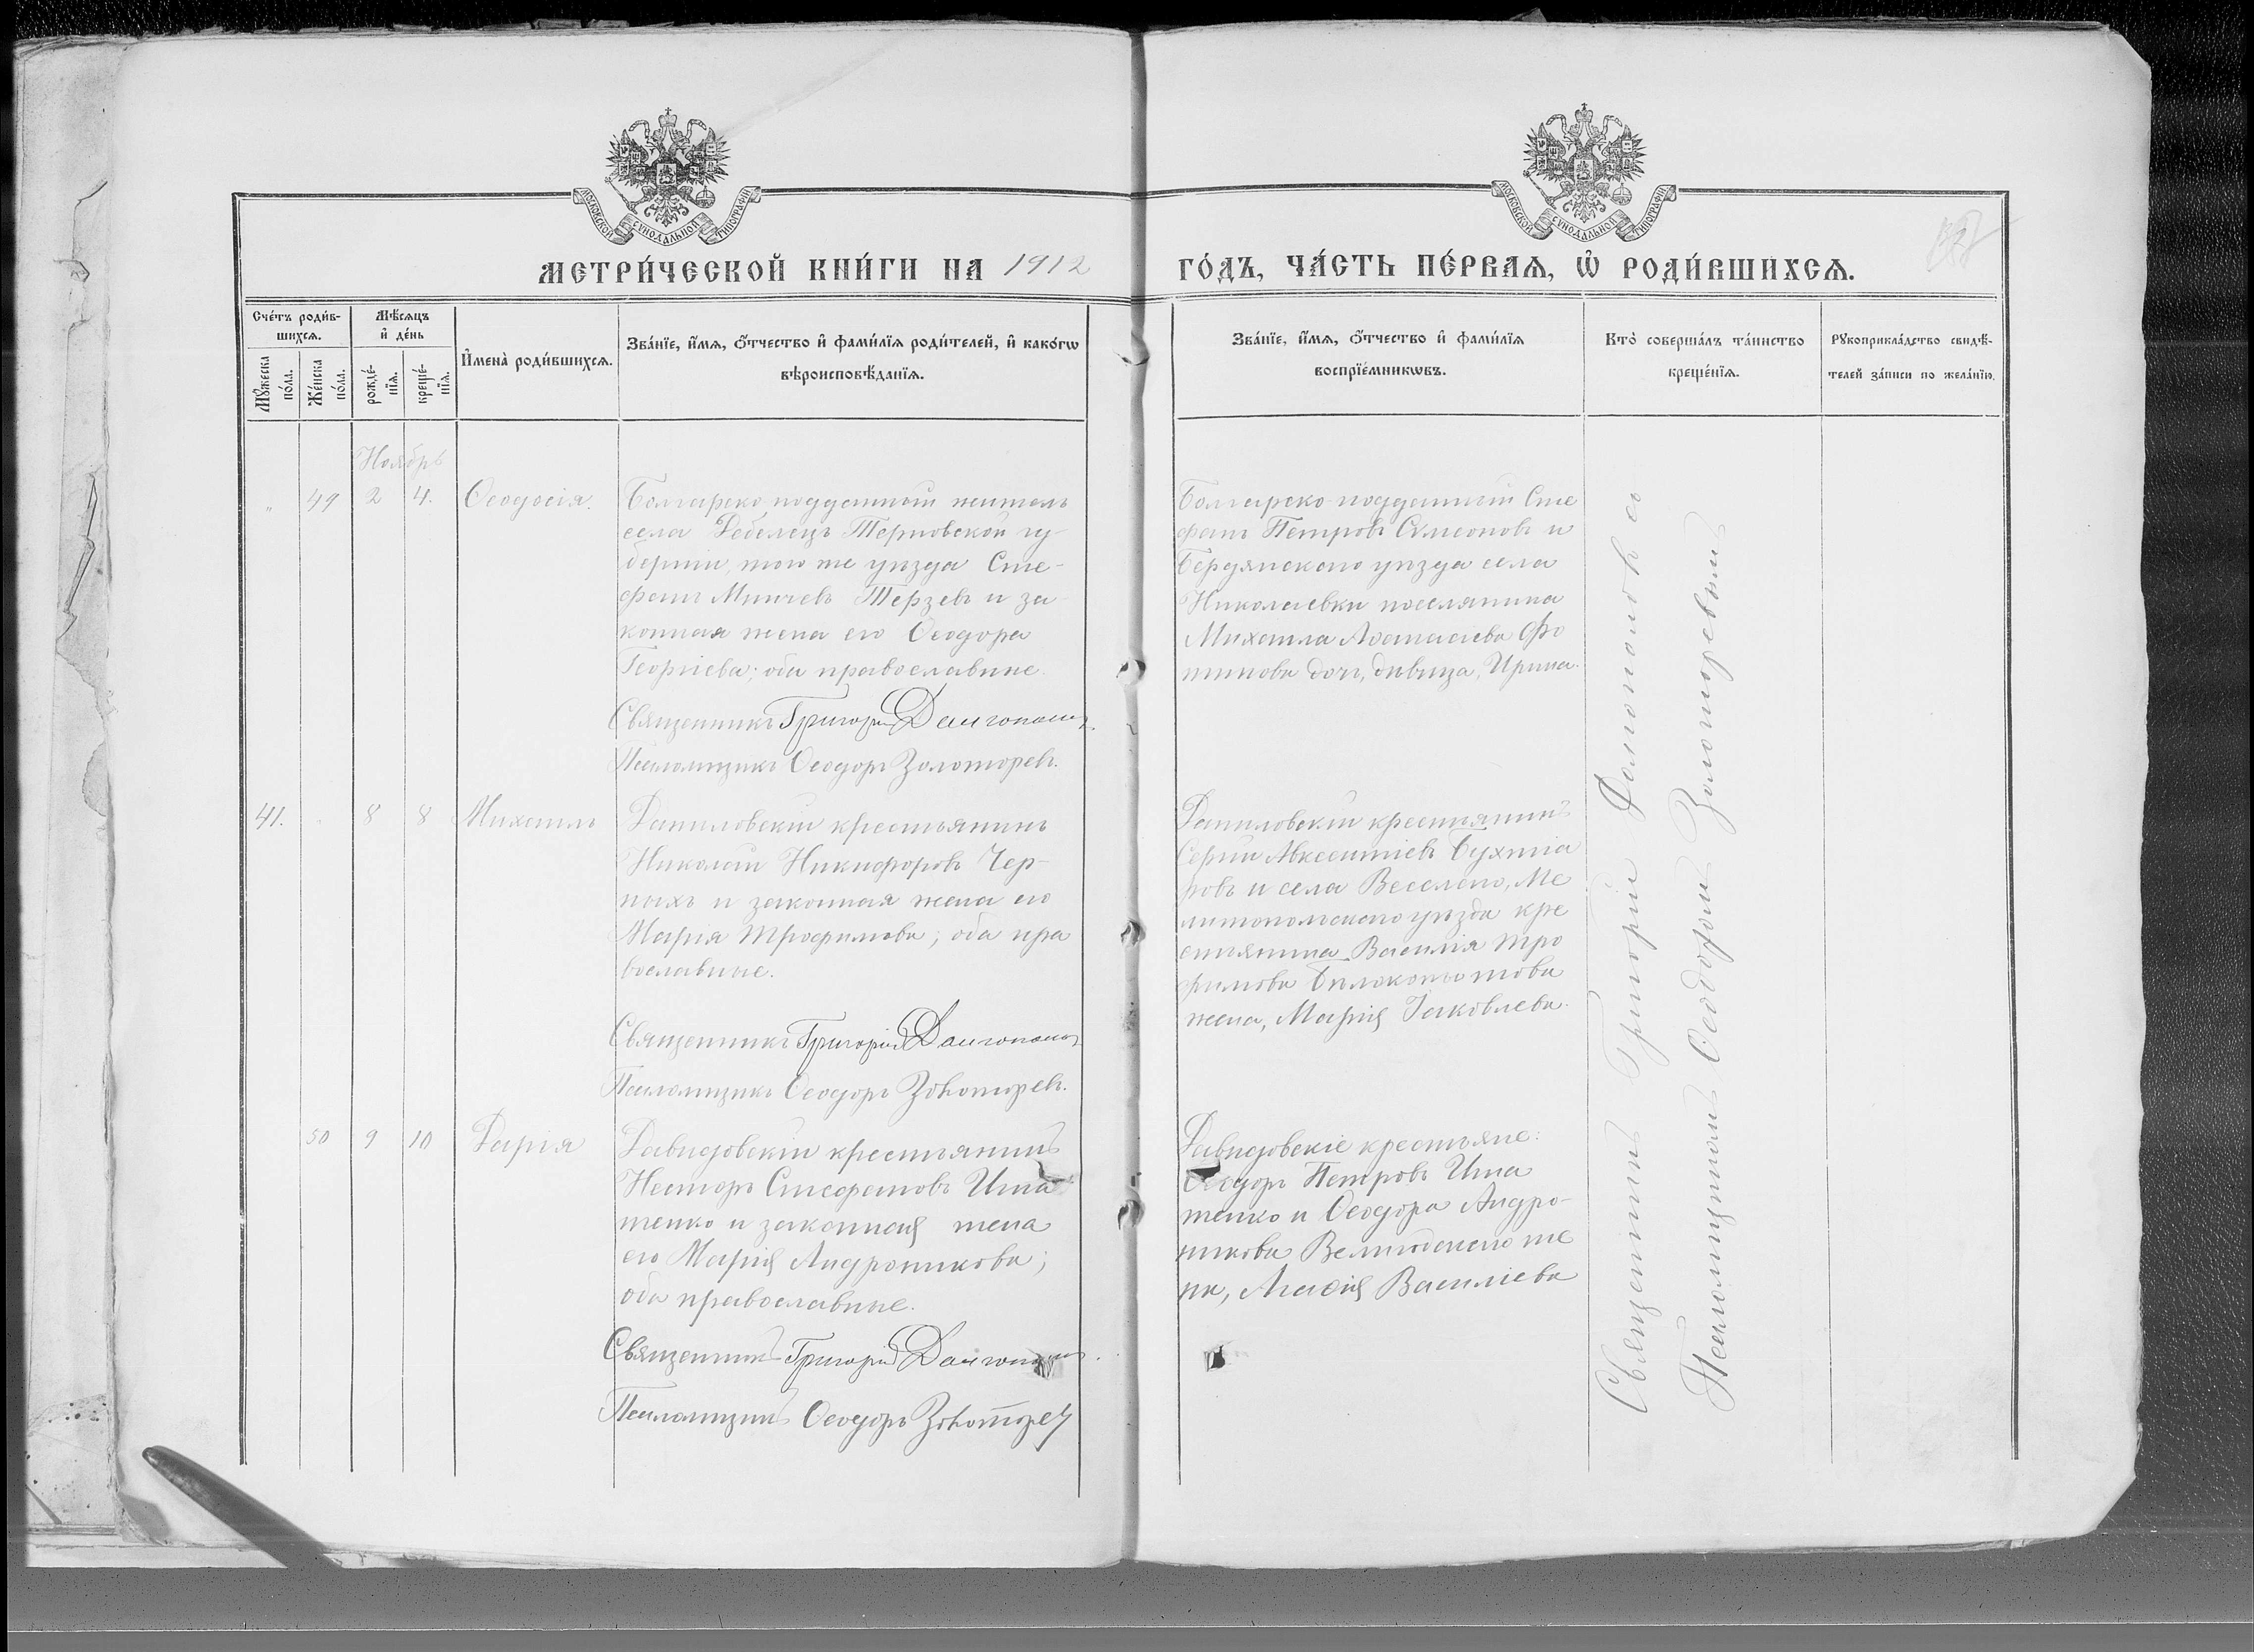 МОСКОВСКОЙ СУНОДАЛЬНОЙ ТИПОГРАФІИ
МОСКОВСКОЙ СУНОДАЛЬНОЙ ТИПОГРАФІИ
МЕТРИ́ЧЕСКОЙ КНИ́ГИ НА 1912
ГО́ДЪ, ЧА́СТЬ ПЕ́РВАѦ, Ѡ҆ РОДИ́ВШИХСѦ.
Сче́тъ роди́в-
шихсѧ.
Мꙋ́жеска
по́ла.
Же́нска
по́ла.
Мѣ́сѧцъ
и҆ де́нь
рожде́-
нїѧ.
креще́-
нїѧ.
И҆мена̀ роди́вшихсѧ.
Зва́нїе, и҆́мѧ, ѻ҆́тчество и҆ фами́лїѧ роди́телей, и҆ како́гѡ
вѣроисповѣ́данїѧ.
Зва́нїе, и҆́мѧ, ѻ҆́тчество и҆ фами́лїѧ
воспрїе́мникѡвъ.
Кто̀ соверша́лъ та́инство
креще́нїѧ.
Рꙋкоприкла́дство свидѣ́-
телей за́писи по жела́нїю.
Ноябрь
" 49 2 4. Ѳеодосія.
Болгарско подданный житель
села Дебелецъ Терновской гу-
берніи, того же уѣзда Сте-
фанъ Минчевъ Терзевъ и за
конная жена его Ѳеодора
Георгіева; оба православные.
Священникъ Григорій
Псаломщикъ Ѳеодоръ Золоторевъ.
Болгарско-подданный Сте
фанъ Петровъ Сѵмеоновъ и
Бердянскаго уѣзда села
Николаевки поселянина
Михаила Аѳанасіева Фо
тинова дочь, дѣвица, Ирина.
41. 8 8 Михаилъ
Даниловскій крестьянинъ
Николай Никифоровъ Чер-
ныхъ и законная жена его
Марія Трофимова; оба пра
вославные.
Священникъ Григорій
Псаломщикъ Ѳеодоръ Золоторевъ.
Даниловскій крестьянинъ
Сергій Авксентіевъ Бухтіа
ровъ и села Веселаго, Ме
литопольскаго уѣзда кре
стьянина Василія Тро
фимова Бѣлокопытова
жена, Марія Іаковлева.
50 9 10 Дарія
Давидовскій крестьянинъ
Несторъ Стефановъ Игна
тенко и законная жена
его Марія Андроникова;
оба православные.
Священникъ Григорій
Псаломщикъ Ѳеодоръ Золоторев
Давидовскіе крестьяне:
Ѳеодоръ Петровъ Игна
тенко и Ѳеодора Андро-
никова Великодскаго же
на, Агаѳія Василіева
Священникъ Григорій съ
Псаломщикомъ Ѳеодоромъ Золоторевымъ